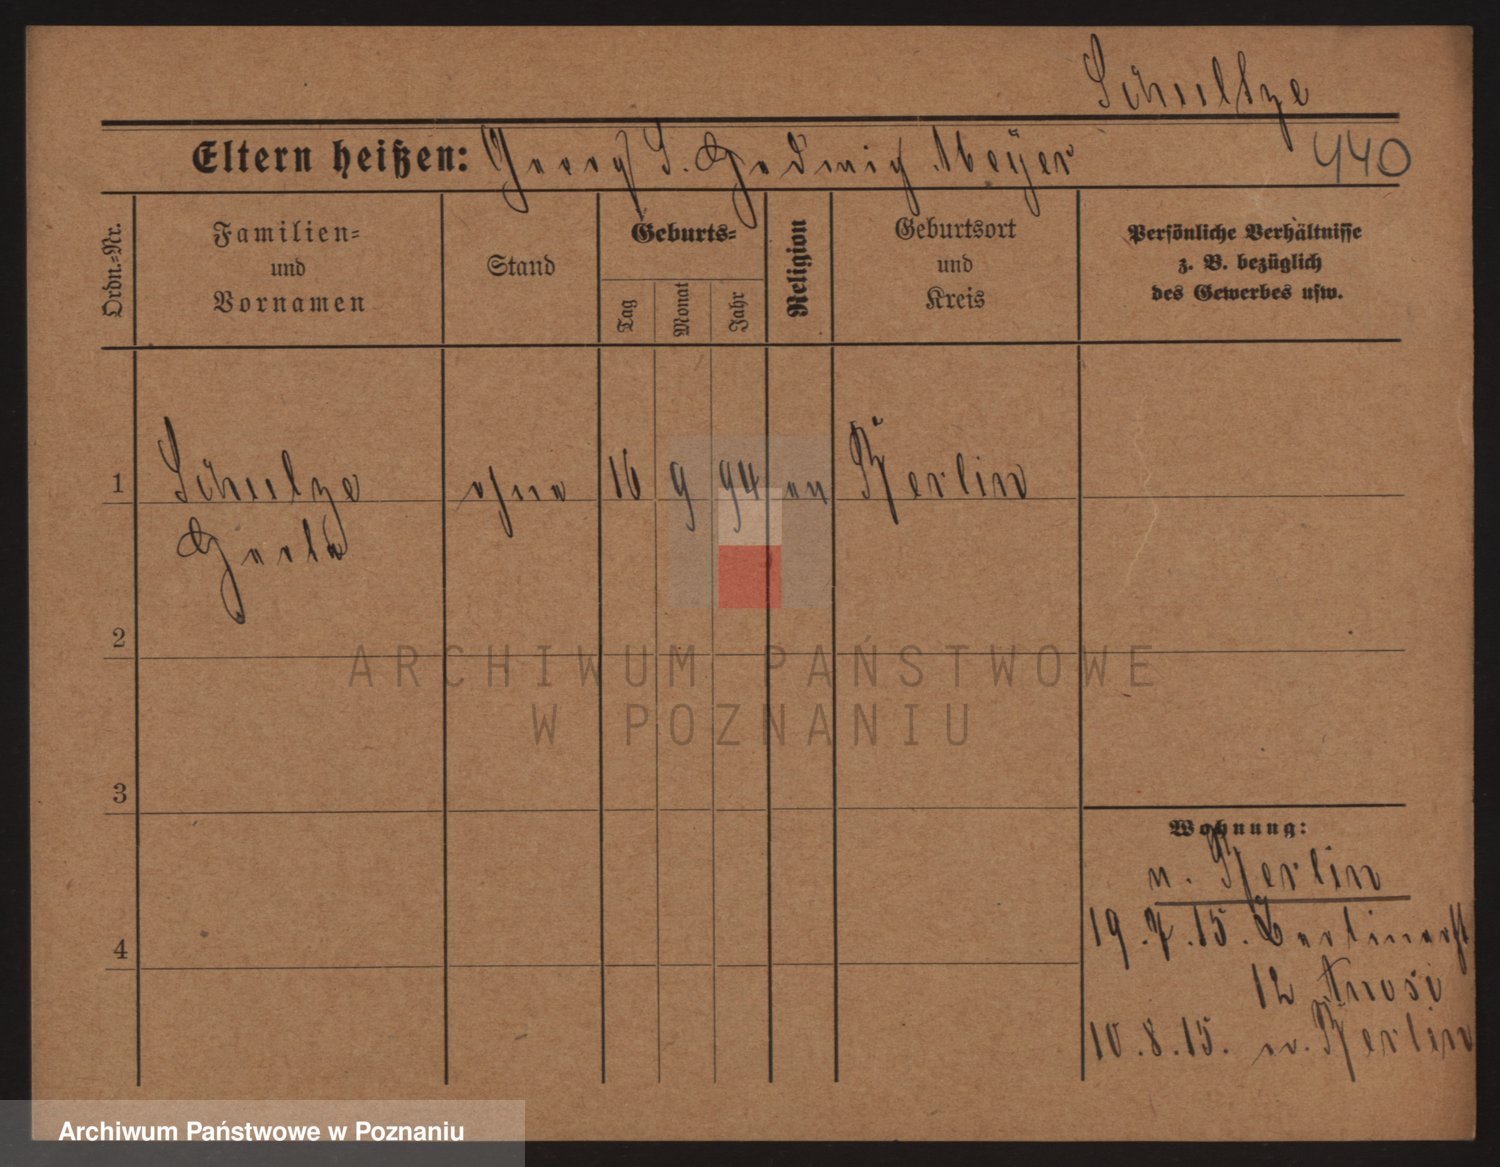 Schultze
440
Eltern heißen: Georg S. Hedwig Meyer
Ordn.-Nr.
Familien-
und
Vornamen
Stand
Geburts-
Tag
Monat
Jahr
Religion
Geburtsort
und
Kreis
Persönliche Verhältnisse
z. B. bezüglich
des Gewerbes usw.
1 Schulze ohne 16 9 94 ev Berlin
2
3
4
Wohnung:
n. Berlin
19.7.15.
12
10.8.15. n. Berlin
ARCHIWUM PAŃSTWOWE
W POZNANIU
Archiwum Państwowe w Poznaniu